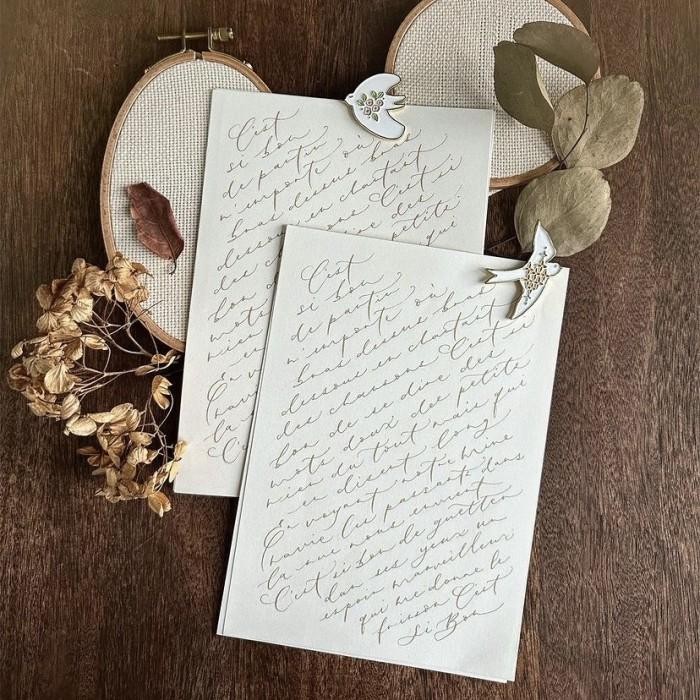 C'est
si bon
de partir
n'importe où
bras dessus bras
dessous en chantant
des chansons C'est si
dire des
petits
qui
C'est
si bon
de partir
n'importe où
bras dessus bras
dessous en chantant
des chansons C'est si
bon de se dire des
mots doux des petits
rien du tout mais qui
en disent long
En voyant notre mine
ravie les passants dans
la rue nous envient
C'est si bon de guetter
dans ses yeux un
espoir merveilleux
qui me donne le
frisson C'est
Si Bon